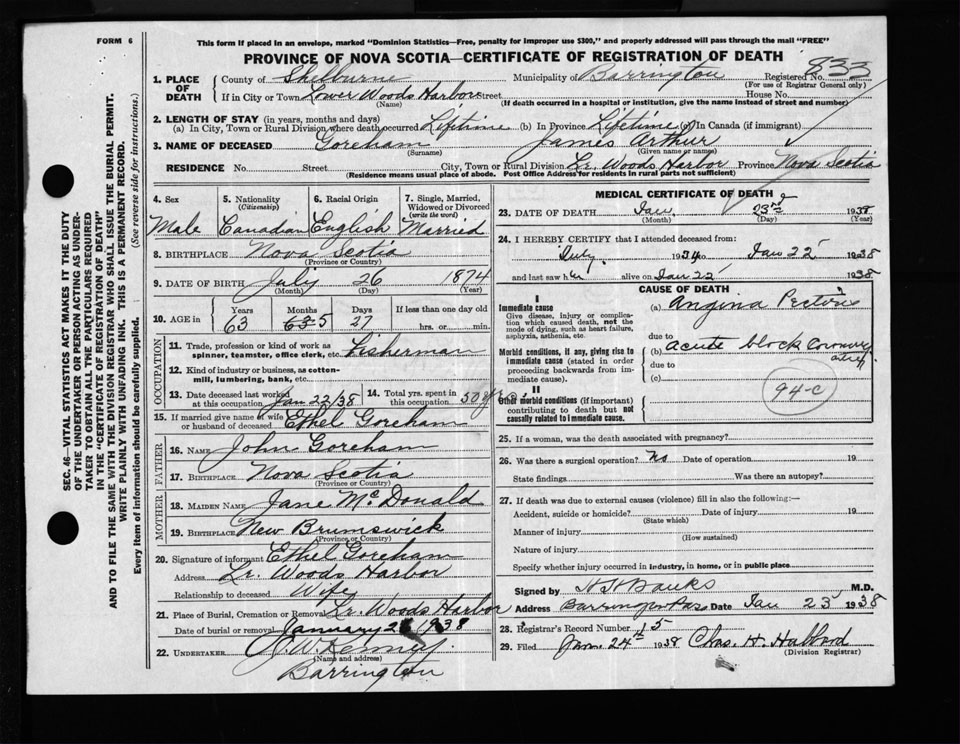 FORM 6
This form if placed in an envelope, marked "Dominion Statistics—Free, penalty for improper use $300," and properly addressed will pass through the mail "FREE"
PROVINCE OF NOVA SCOTIA—CERTIFICATE OF REGISTRATION OF DEATH
833
1. PLACE OF DEATH County of Shelburne Municipality of Barrington Registered No.
(For use of Registrar General only)
If in City or Town Lower Woods Harbor Street House No.
(Name) (If death occurred in a hospital or institution, give the name instead of street and number)
2. LENGTH OF STAY (in years, months and days)
(a) In City, Town or Rural Division where death occurred Lifetime (b) In Province Lifetime (c) In Canada (if immigrant)
3. NAME OF DECEASED Goreham James Arthur
(Surname) (Given name or names)
RESIDENCE No. Street City, Town or Rural Division Lr. Woods Harbor Province Nova Scotia
(Residence means usual place of abode. Post Office Address for residents in rural parts not sufficient)
4. Sex 5. Nationality (Citizenship) 6. Racial Origin 7. Single, Married, Widowed or Divorced (write the word)
Male Canadian English Married
8. BIRTHPLACE Nova Scotia
(Province or Country)
9. DATE OF BIRTH July 26 1874
(Month) (Day) (Year)
10. AGE in Years Months Days If less than one day old
63 63-5 27 hrs. or min.
OCCUPATION
11. Trade, profession or kind of work as spinner, teamster, office clerk, etc. Fisherman
12. Kind of industry or business, as cotton-mill, lumbering, bank, etc.
13. Date deceased last worked at this occupation Jan 22/38
14. Total yrs. spent in this occupation 50 yrs
15. If married give name of wife or husband of deceased Ethel Goreham
FATHER
16. NAME John Goreham
17. BIRTHPLACE Nova Scotia
(Province or Country)
MOTHER
18. MAIDEN NAME Jane McDonald
19. BIRTHPLACE New Brunswick
(Province or Country)
20. Signature of informant Ethel Goreham
Address Lr. Woods Harbor
Relationship to deceased Wife
21. Place of Burial, Cremation or Removal Lr. Woods Harbor
Date of burial or removal January 1938
22. UNDERTAKER J. W. Kenney
(Name and address)
Barrington
MEDICAL CERTIFICATE OF DEATH
23. DATE OF DEATH Jan. 23rd 1938
(Month) (Day) (Year)
24. I HEREBY CERTIFY that I attended deceased from:
July 1934 to Jan 22 1938
and last saw h alive on Jan 22 1938
CAUSE OF DEATH
I
Immediate cause
Give disease, injury or complication which caused death, not the mode of dying, such as heart failure, asphyxia, asthenia, etc.
(a) Angina Pectoris
due to
Morbid conditions, if any, giving rise to immediate cause (stated in order proceeding backwards from immediate cause).
(b) acute block Coronary artery
due to
(c)
94-c
II
Other morbid conditions (if important) contributing to death but not causally related to immediate cause.
25. If a woman, was the death associated with pregnancy?
26. Was there a surgical operation? No Date of operation 19
State findings Was there an autopsy?
27. If death was due to external causes (violence) fill in also the following:—
Accident, suicide or homicide? Date of injury 19
(State which)
Manner of injury
(How sustained)
Nature of injury
Specify whether injury occurred in industry, in home, or in public place
Signed by H H Banks M.D.
Address Barrington Pas. Date Jan 23 1938
28. Registrar's Record Number 15
29. Filed Jan. 24th 1938 Chas. H. Habbord
(Division Registrar)
SEC. 46—VITAL STATISTICS ACT MAKES IT THE DUTY
OF THE UNDERTAKER OR PERSON ACTING AS UNDER-
TAKER TO OBTAIN ALL THE PARTICULARS REQUIRED
IN THE "CERTIFICATE OF REGISTRATION OF DEATH"
AND TO FILE THE SAME WITH THE DIVISION REGISTRAR WHO SHALL ISSUE THE BURIAL PERMIT.
WRITE PLAINLY WITH UNFADING INK. THIS IS A PERMANENT RECORD.
Every item of information should be carefully supplied. (See reverse side for instructions).